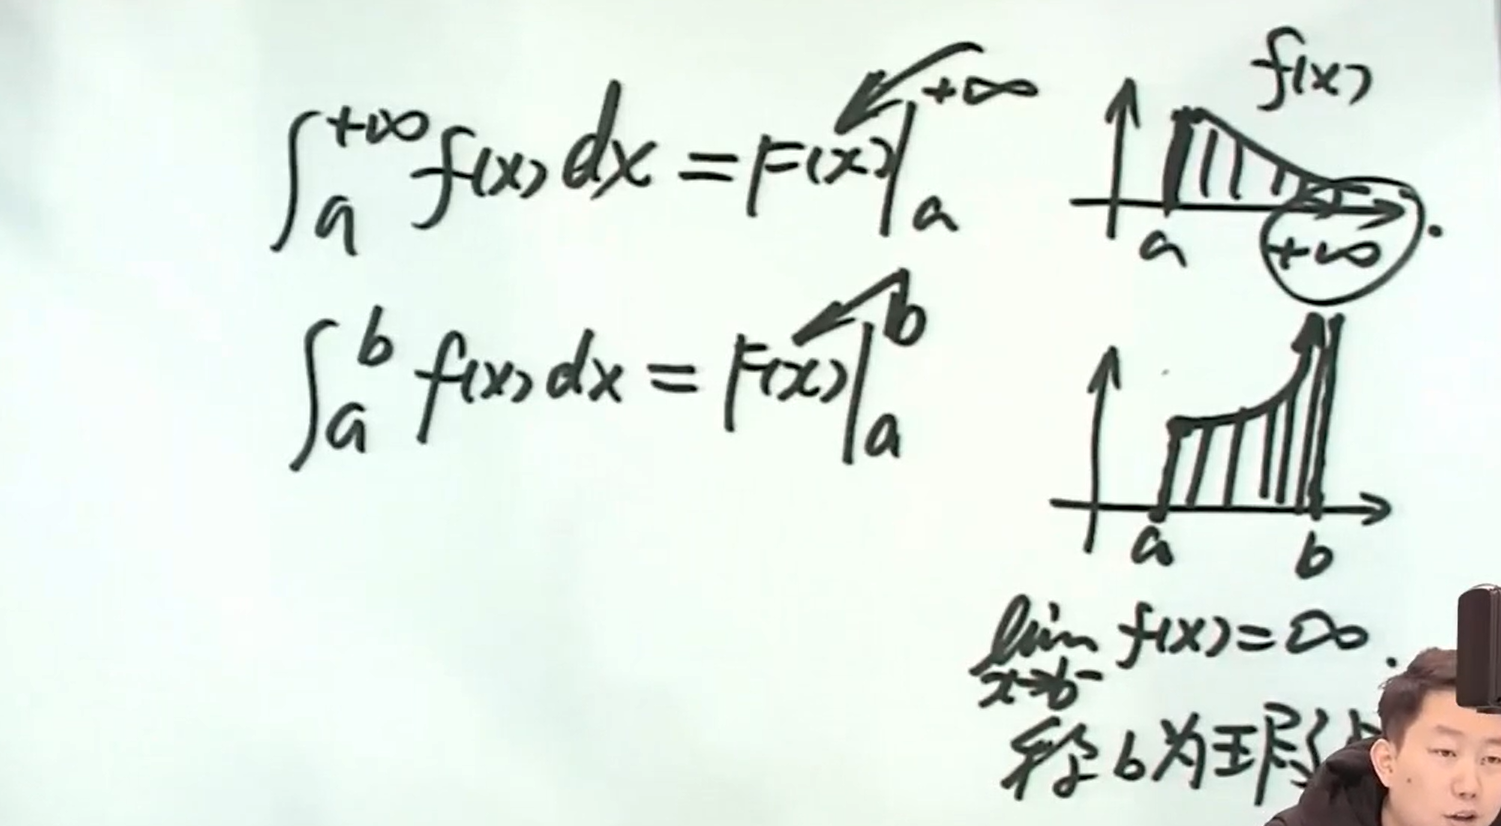 ∫_a^{+∞} f(x)dx = F(x)|_a^{+∞}
f(x)
a +∞
∫_a^b f(x)dx = F(x)|_a^b
a b
lim_{x→b⁻} f(x)=∞.
称b为瑕